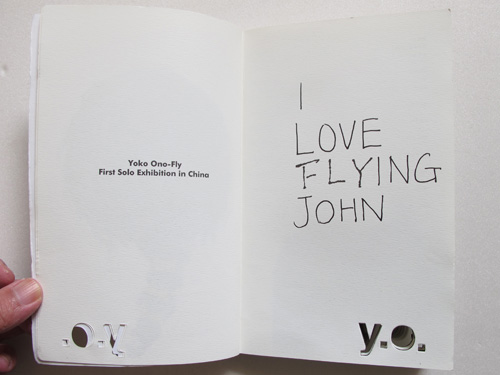 Yoko Ono-Fly
First Solo Exhibition in China
y.o.
I
LOVE
FLYING
JOHN
y.o.